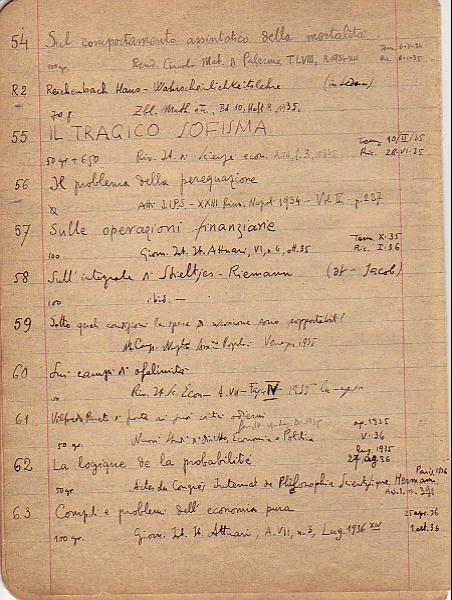 54 Sul comportamento assintotico della mortalità
100 gr. Rend. Circolo Mat. di Palermo, T. LVIII, A. 1934-XII
R2 Reichenbach Hans - Wahrscheinlichkeitslehre
70 g. Zbl. Math. Bd. 10, Heft 8, 1935.
55 IL TRAGICO SOFISMA 10/II/35
50 gr. + 650 Riv. It. di Scienze econ. A. VII, 1935 Ric. 28-VI-35
56 Il problema della perequazione
Atti S.I.P.S. - XXIII Riun. Napoli 1934 - Vol. II p. 227
57 Sulle operazioni finanziarie X.35
100 Giorn. Ist. It. Attuari, VI, n. 4, ott. 35 Ric. I.36
58 Sull'integrale di Stieltjes-Riemann (at - Jacob)
100 ibid. —
59 Sotto quali condizioni le spese di sono sopportabili?
1935
60 Sui campi di ofelimità
Riv. It. Sc. Econ. - A. VII - IV - 1935
61 Vilfredo Pareto di fronte ai suoi critici odierni ag. 1935
50 gr. Nuovi Studi di Diritto, Economia e Politica V-36
62 La logique de la probabilité 27 36
50 gr. Actes du Congrès Internat. de Philosophie Scientifique, Hermann Paris, 1936
n. 391
63 Compiti e problemi dell'economia pura 25 apr. 36
100 gr. Giorn. Ist. It. Attuari, A. VII, n. 3, Lug 1936 XIV 1 ott. 36